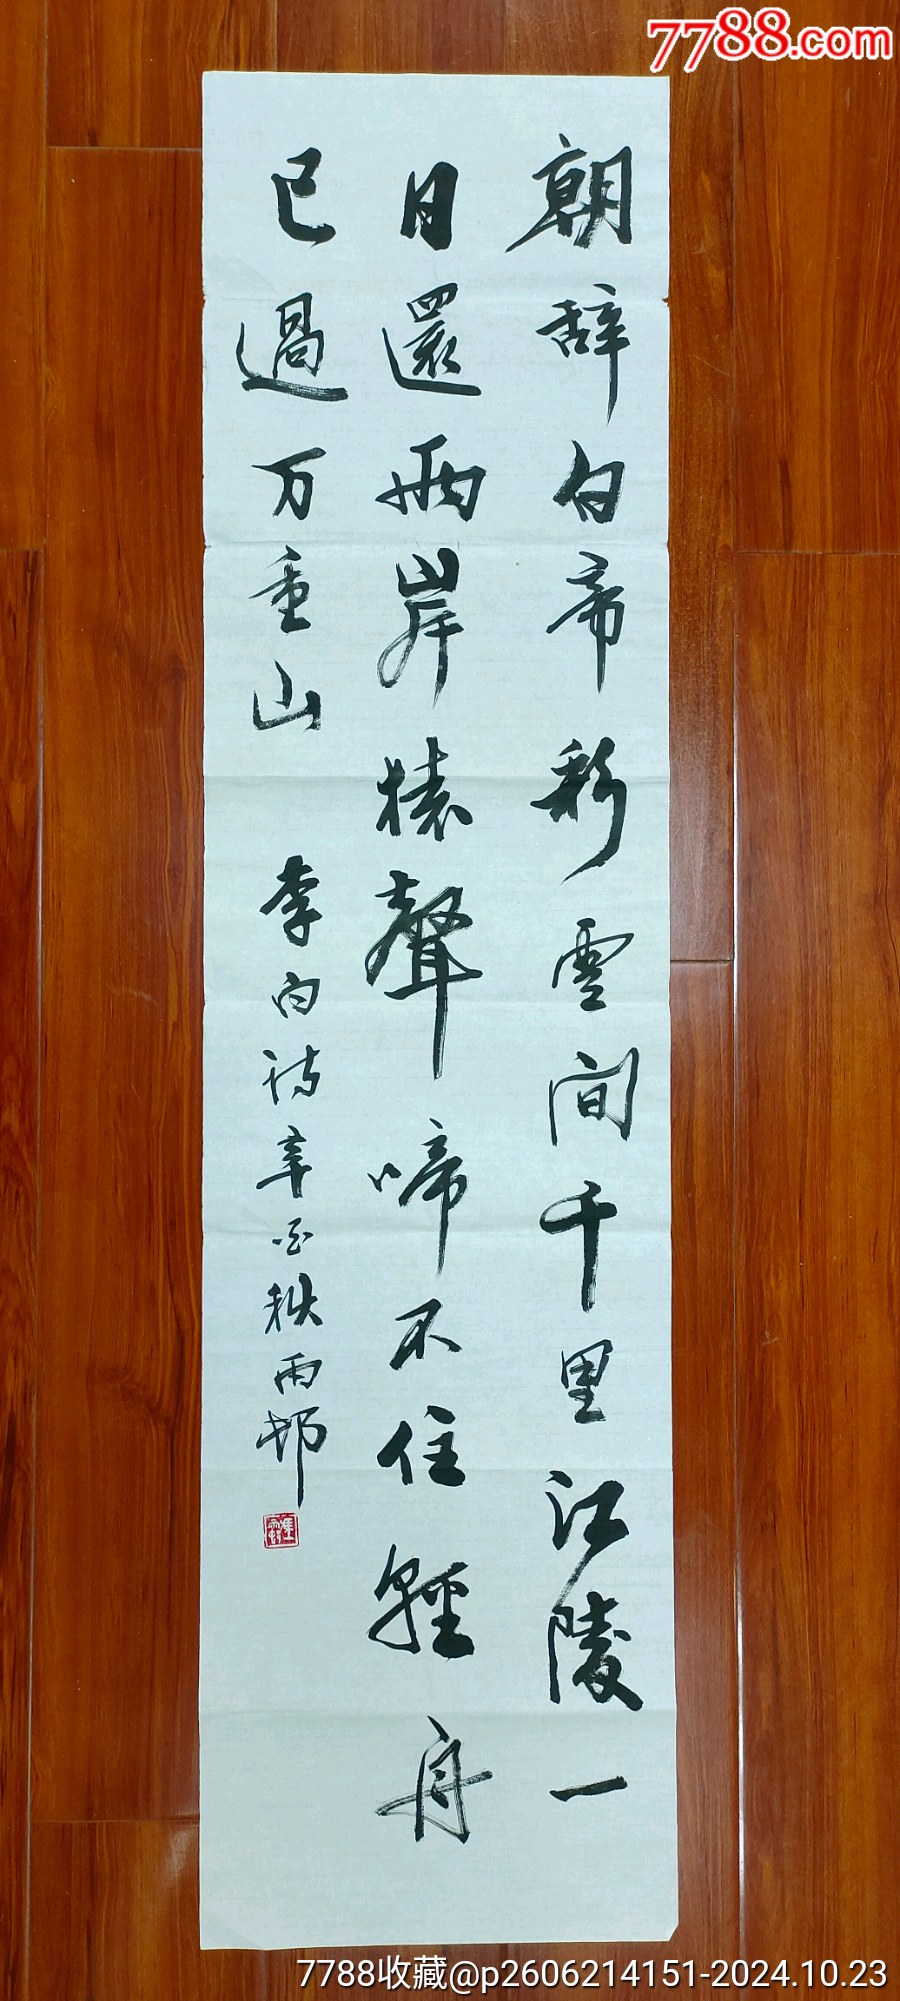 7788.com
朝辞白帝彩雲间千里江陵一
日還兩岸猿聲啼不住輕舟
已過万重山
李白诗辛酉秋雨邨
7788收藏@p2606214151-2024.10.23